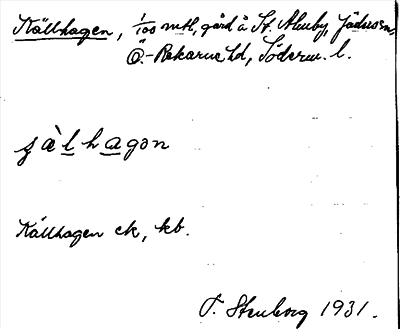 Källhagen, 1/100 mtl, gård å St. Åluby, Jäders sn,
Ö.-Rekarne hd, Söderm. l.
ȷà̀lhagɔn
Källhagen ek, kb.
Stenborg 1931.